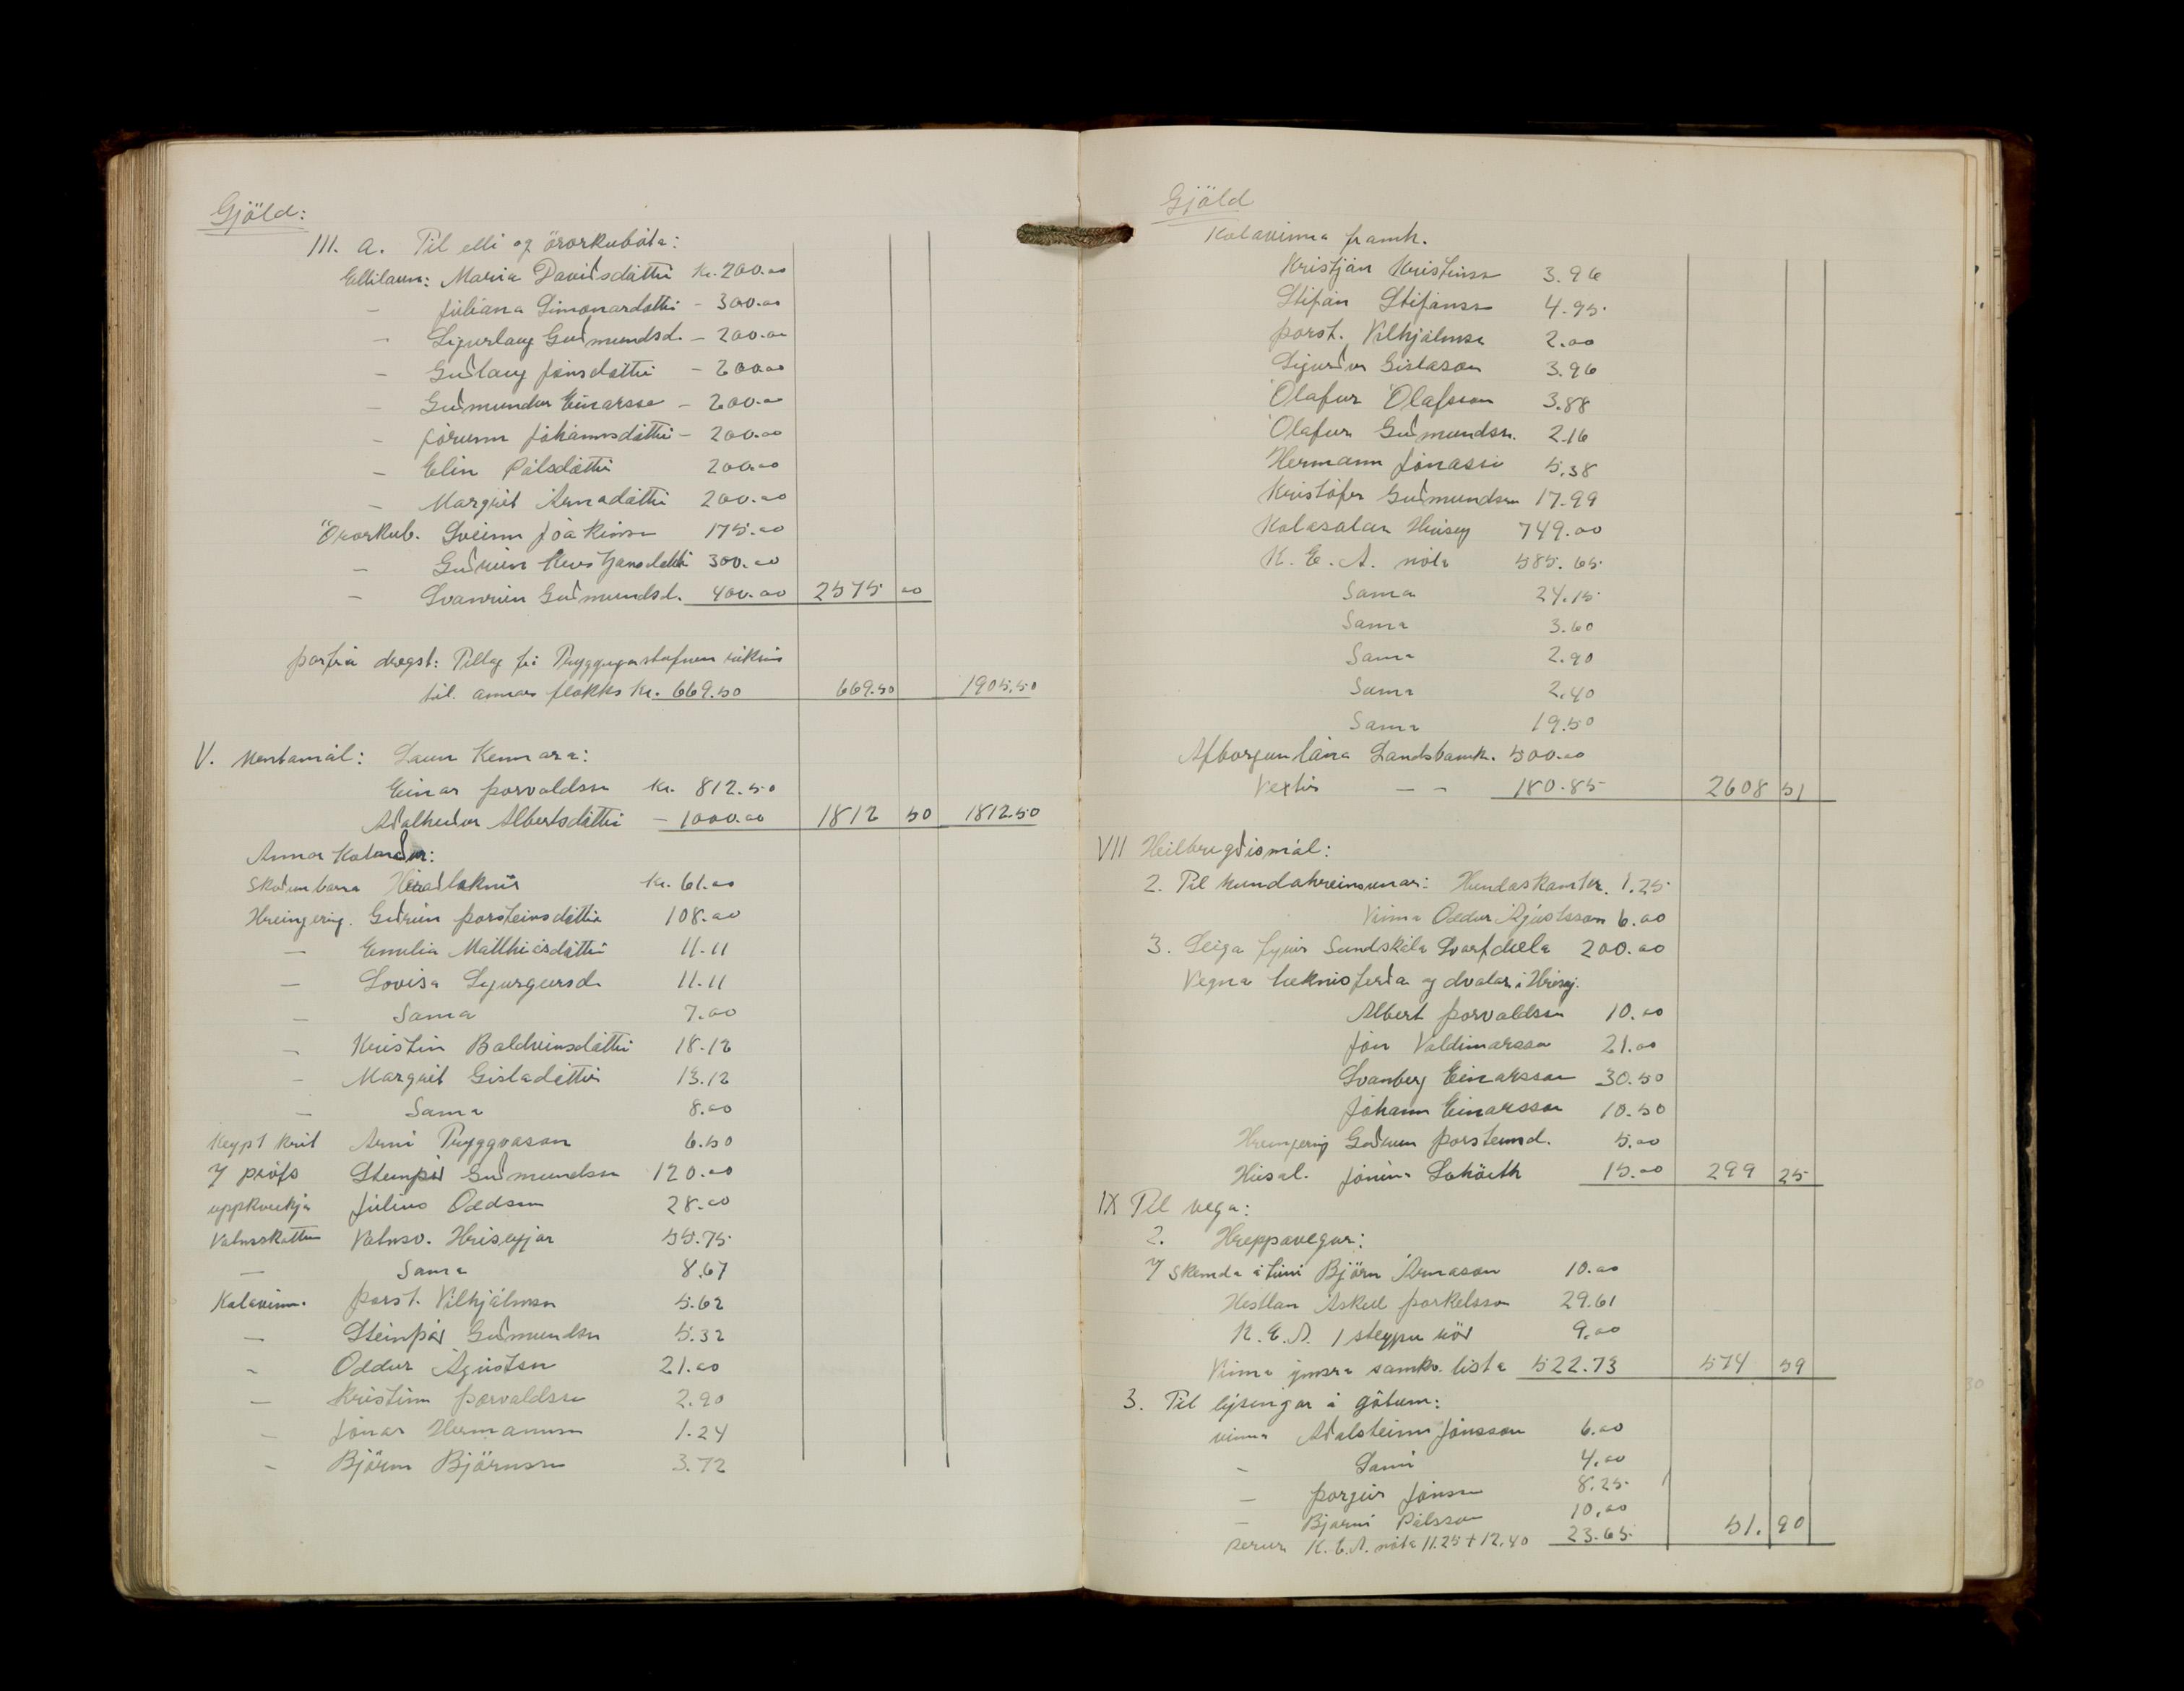 Gjöld:
III. a. Til elli og örorkubóta:
Ellilaun: María Davíðsdóttir Kr. 200.00
– Júlíana Símonardóttir – 300.00
– Sigurlaug Guðmundsd. – 200.00
– Guðlaug Jónsdóttir – 200.00
– Guðmundur Einarsson – 200.00
– Jórunn Jóhannsdóttir – 200.00
– Elín Pálsdóttir 200.00
– Margrét Árnadóttir 200.00
Örorkub. Sveinn Jóakimss 175.00
– Guðrún Kristjánsdóttir 300.00
– Svanrún Guðmundsd. 400.00 2575 00
Þarfrá dregst: Tillag frá Tryggingarstofnun ríkisins
til annars flokks Kr. 669.50 669.50 1905.50
V. Mentamál: Laun Kennara:
Einar Þorvaldsson Kr. 812.50
Aðalheiður Albertsdóttir – 1000.00 1812 50 1812.50
Annar Kostnaður:
Skoðun barna Héraðlæknir Kr. 61.00
Hreingering. Guðrún Þorsteinsdóttir 108.00
– Emilía Matthíasdóttir 11.11
– Lovísa Sigurgeirsd. 11.11
– Sama 7.00
– Kristín Baldvinsdóttir 18.12
– Margrét Gísladóttir 13.12
– Sama 8.00
Keypt krít Árni Tryggvason 6.50
Y prófs Steinþór Guðmundsson 120.00
uppkveikja Júlíus Oddsson 28.00
Vatnsskattur Vatnsv. Hríseyjar 55.75
– Sama 8.67
Kolavinn. Þorst. Vilhjálmsson 5.62
– Steinþór Guðmundsson 5.32
– Oddur Ágústsson 21.00
– Kristinn Þorvaldsson 2.90
– Jónas Hermannsson 1.24
– Björn Björnsson 3.72
Gjöld
Kolavinna framh.
Kristján Kristinsson 3.96
Stefán Stefánsson 4.95
Þorst. Vilhjálmsson 2.00
Sigurður Gíslason 3.96
Ólafur Ólafsson 3.88
Ólafur Guðmundsson. 2.16
Hermann Jónasson 5.38
Kristófer Guðmundsson 17.99
Kolasalan Hrísey 749.00
K. E. A. nóta 585.65
Sama 24.15
Sama 3.60
Sama 2.90
Sama 2.40
Sama 19.50
Afborgun lána Landsbank. 500.00
Vextir – – 180.85 2608 51
VII Heilbrigðismál:
2. Til hundahreinsunar: Hundaskamtar. 1.25
Vinna Oddur Ágústsson 6.00
3. Leiga fyrir Sundskála Svarfdæla 200.00
Vegna læknisferða og dvalar í Hrísey.
Albert Þorvaldsson 10.00
Jón Valdimarsson 21.00
Svanberg Einarsson 30.50
Jóhann Einarsson 10.50
Hreingering Guðrún Þorsteinsd. 5.00
Húsal. Jónína 15.00 299 25
IX Til vega:
2. Hreppavegur:
Y Skemda á túni Björn Árnason 10.00
Hestlán Áskell Þorkelsson 29.61
K. E. A. 1 steypu rör 9.00
Vinna ýmsra samkv. lista 522.73 574 59
3. Til lýsingar á götum:
vinna Aðalsteinn Jónsson 6.00
– Sami 4.00
– Þorgeir Jónsson 8.25
– Bjarni Pálsson 10.00
perur K. E. A. nóta 11.25 + 12.40 23.65 51. 90